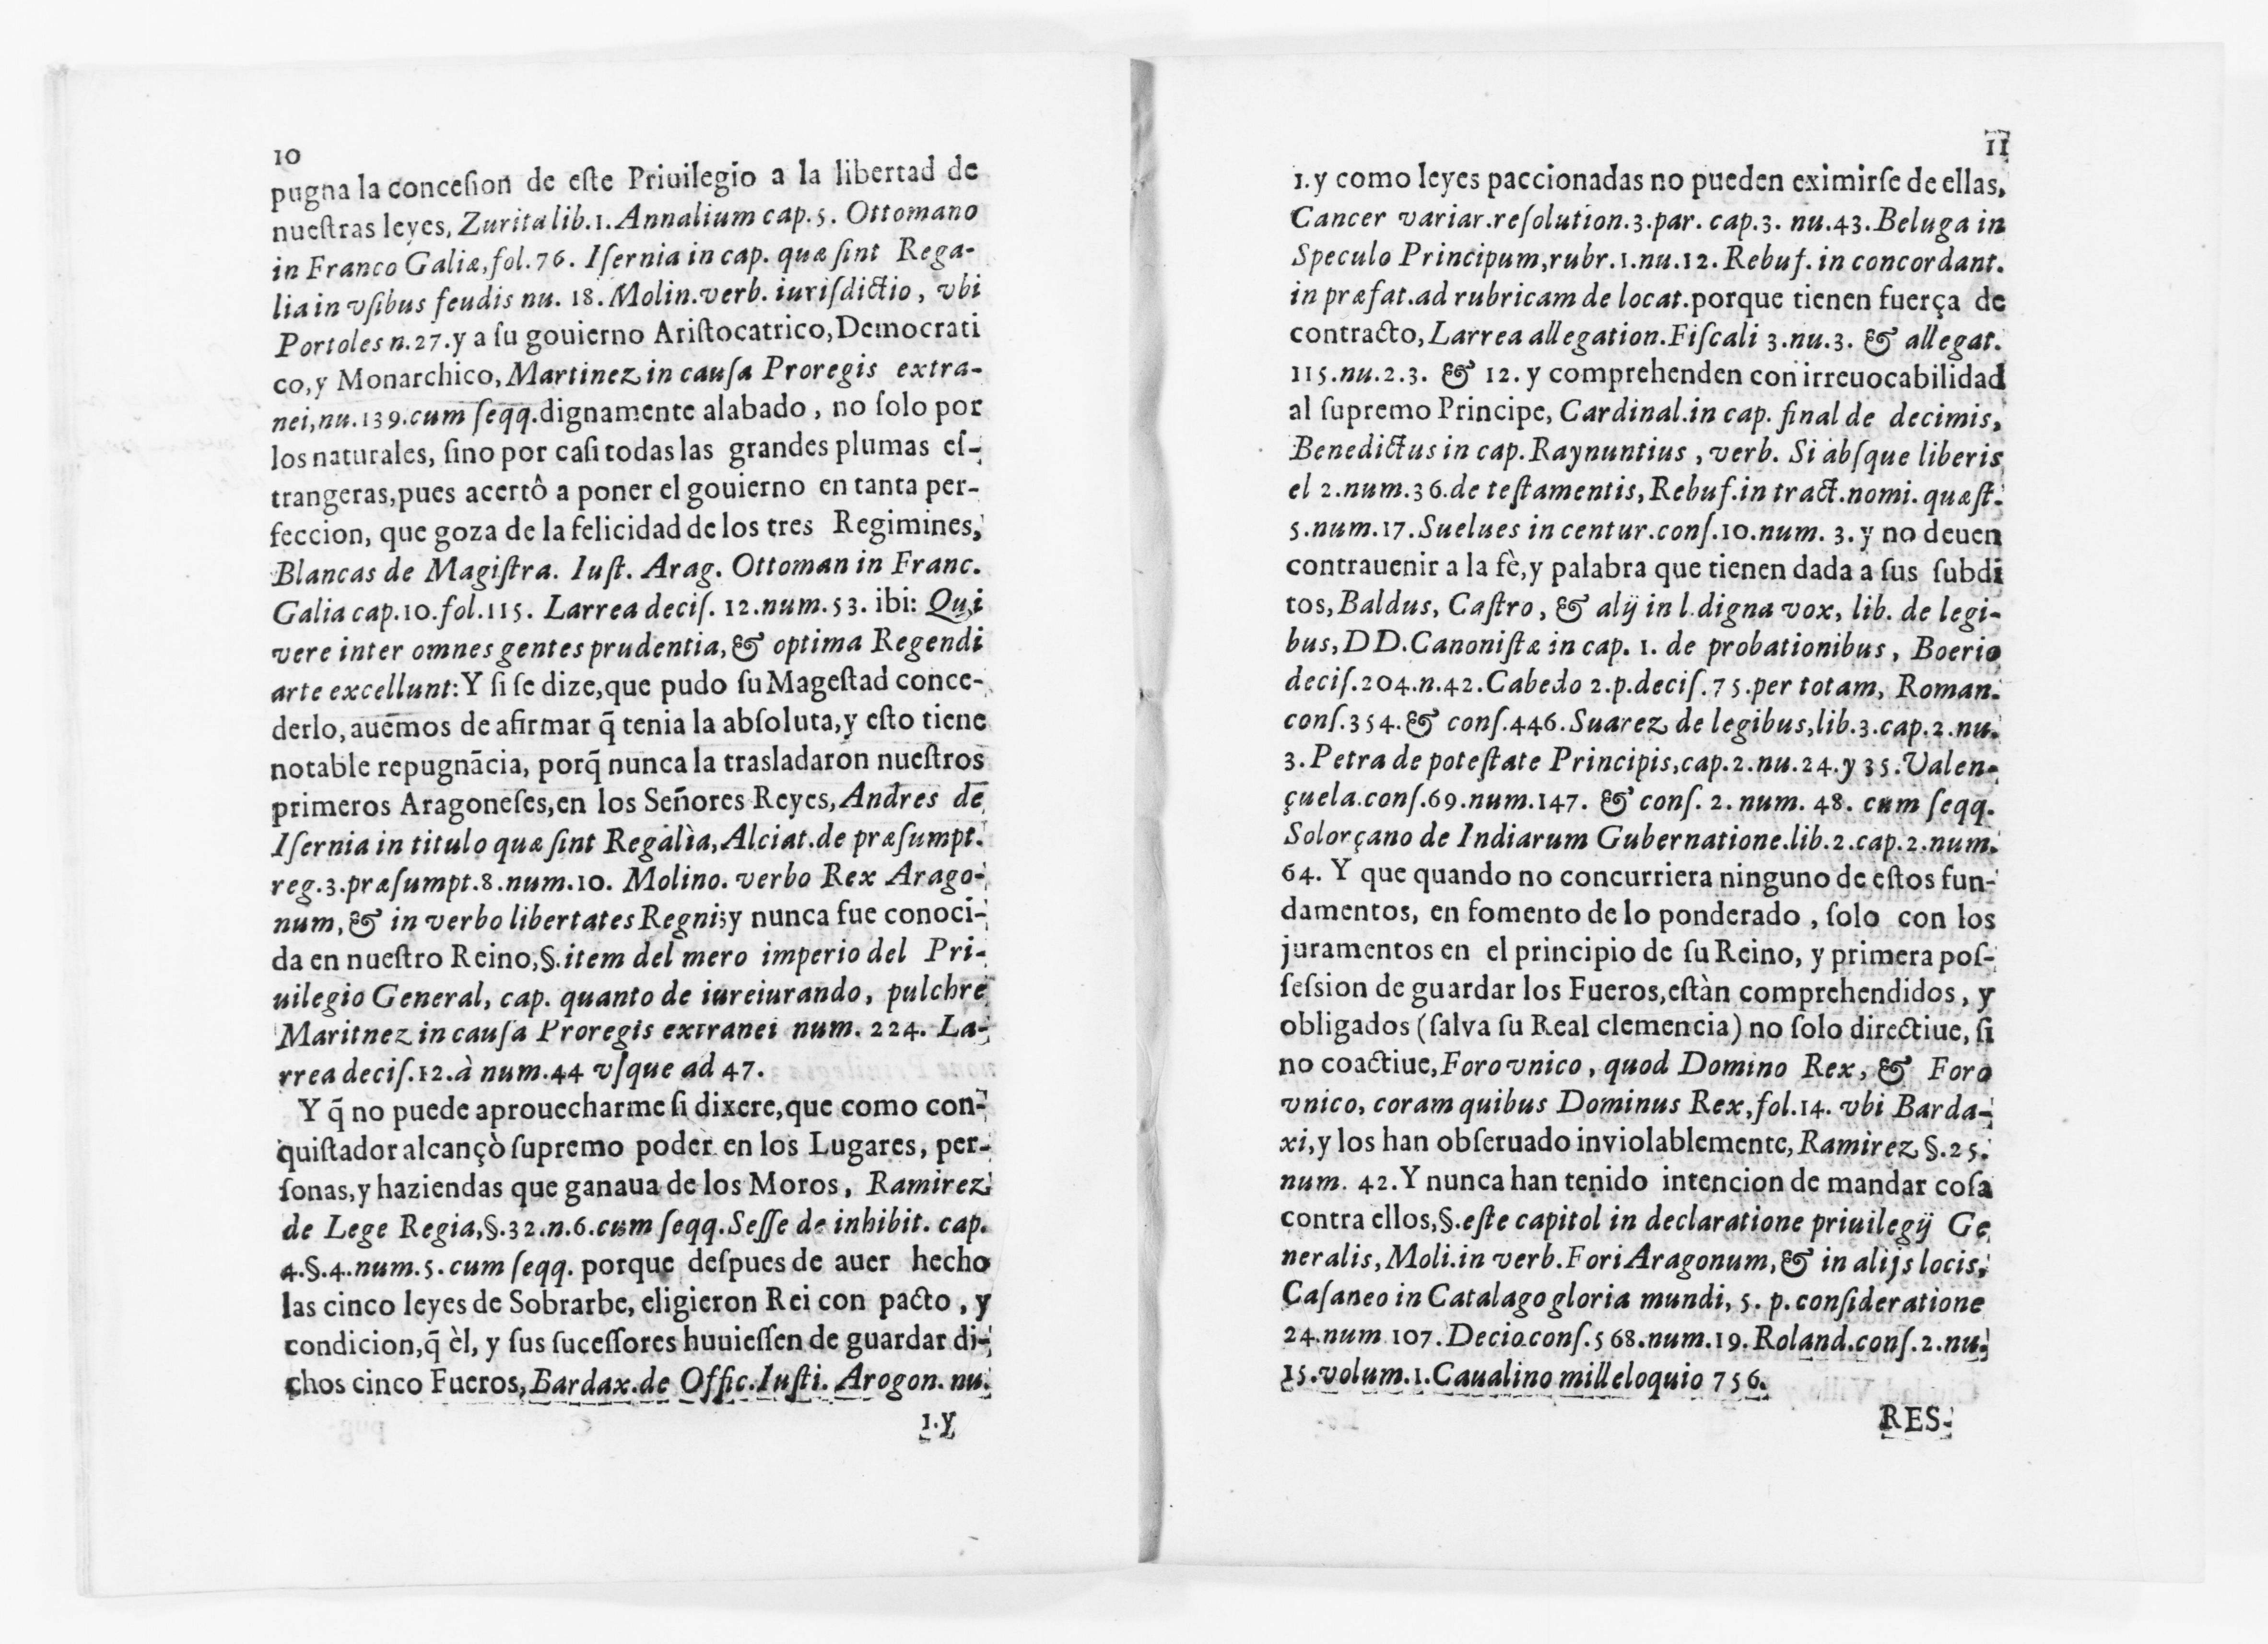 10
pugna la conceſion de eſte Priuilegio a la libertad de
nueſtras leyes, Zurita lib.1. Annalium cap.5. Ottomano
in Franco Galiæ, fol.76. Iſernia in cap. quæ ſint Rega-
lia in vſibus feudis nu. 18. Molin. verb. iuriſdictio, vbi
Portoles n.27. y a ſu gouierno Ariſtocatrico, Democrati
co, y Monarchico, Martinez in cauſa Proregis extra-
nei, nu.139. cum ſeqq. dignamente alabado, no ſolo por
los naturales, ſino por caſi todas las grandes plumas eſ-
trangeras, pues acertô a poner el gouierno en tanta per-
feccion, que goza de la felicidad de los tres Regimines,
Blancas de Magiſtra. Iuſt. Arag. Ottoman in Franc.
Galia cap.10. fol.115. Larrea deciſ. 12. num.53. ibi: Qui
vere inter omnes gentes prudentia, & optima Regendi
arte excellunt: Y ſi ſe dize, que pudo ſu Mageſtad conce-
derlo, auemos de afirmar q̃ tenia la abſoluta, y eſto tiene
notable repugnãcia, porq̃ nunca la trasladaron nueſtros
primeros Aragoneſes, en los Señores Reyes, Andres de
Iſernia in titulo quæ ſint Regalia, Alciat. de præſumpt.
reg.3. præſumpt.8. num.10. Molino. verbo Rex Arago-
num, & in verbo libertates Regni; y nunca fue conoci-
da en nueſtro Reino, §. item del mero imperio del Pri-
uilegio General, cap. quanto de iureiurando, pulchrè
Maritnez in cauſa Proregis extranei num. 224. La-
rrea deciſ.12. à num.44 vſque ad 47.
Y q̃ no puede aprouecharme ſi dixere, que como con-
quiſtador alcançò ſupremo poder en los Lugares, per-
ſonas, y haziendas que ganaua de los Moros, Ramirez
de Lege Regia, §.32. n.6. cum ſeqq. Seſſe de inhibit. cap.
4. §.4. num.5. cum ſeqq. porque deſpues de auer hecho
las cinco leyes de Sobrarbe, eligieron Rei con pacto, y
condicion, q̃ èl, y ſus ſuceſſores huuieſſen de guardar di-
chos cinco Fueros, Bardax. de Offic. Iuſti. Arogon. nu.
1. Y
11
1. y como leyes paccionadas no pueden eximirſe de ellas,
Cancer variar. reſolution. 3. par. cap.3. nu.43. Beluga in
Speculo Principum, rubr.1. nu.12. Rebuf. in concordant.
in præfat. ad rubricam de locat. porque tienen fuerça de
contracto, Larrea allegation. Fiſcali 3. nu.3. & allegat.
115. nu.2.3. & 12. y comprehenden con irreuocabilidad
al ſupremo Principe, Cardinal. in cap. final de decimis,
Benedictus in cap. Raynuntius, verb. Si abſque liberis
el 2. num.36. de teſtamentis, Rebuf. in tract. nomi. quæſt.
5. num.17. Suelues in centur. conſ.10. num. 3. y no deuen
contrauenir a la fè, y palabra que tienen dada a ſus ſubdi
tos, Baldus, Caſtro, & alij in l. digna vox, lib. de legi-
bus, DD. Canoniſtæ in cap. 1. de probationibus, Boerio
deciſ.204. n.42. Cabedo 2. p. deciſ.75. per totam, Roman.
conſ.354. & conſ.446. Suarez de legibus, lib.3. cap.2. nu.
3. Petra de poteſtate Principis, cap.2. nu.24. y 35. Valen-
çuela. conſ.69. num.147. & conſ. 2. num. 48. cum ſeqq.
Solorçano de Indiarum Gubernatione. lib.2. cap.2. num.
64. Y que quando no concurriera ninguno de eſtos fun-
damentos, en fomento de lo ponderado, ſolo con los
juramentos en el principio de ſu Reino, y primera poſ-
ſeſsion de guardar los Fueros, eſtàn comprehendidos, y
obligados (ſalva ſu Real clemencia) no ſolo directiue, ſi
no coactiue, Foro vnico, quod Domino Rex, & Foro
vnico, coram quibus Dominus Rex, fol.14. vbi Barda-
xi, y los han obſeruado inviolablemente, Ramirez §.25.
num. 42. Y nunca han tenido intencion de mandar coſa
contra ellos, §. eſte capitol in declaratione priuilegij Ge
neralis, Moli. in verb. Fori Aragonum, & in alijs locis,
Caſaneo in Catalago gloria mundi, 5. p. conſideratione
24. num 107. Decio. conſ.568. num.19. Roland. conſ.2. nu.
15. volum.1. Caualino milleloquio 756.
RES-